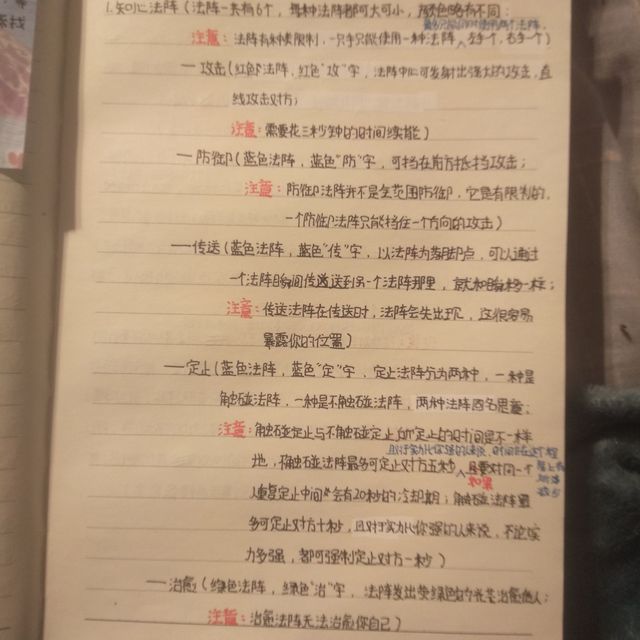 1.知心法阵（法阵一共有6个，每种法阵都可大可小，颜色略有不同：
注意：法阵有种类限制，一只手只能使用一种法阵，左手一个，右手一个）
—攻击（红色法阵，红色“攻”字，法阵中心可发射出强大的攻击，直
线攻击对方；
注意：需要花三秒钟的时间续能）
—防御（蓝色法阵，蓝色“防”字，可挡在前方抵挡攻击；
注意：防御法阵并不是全范围防御，它是有限制的，
一个防御法阵只能挡住一个方向的攻击）
—传送（蓝色法阵，蓝色“传”字，以法阵为落脚点，可以通过
一个法阵瞬间传送到另一个法阵那里，就和瞬移一样；
注意：传送法阵在传送时，法阵会先出现，这很容易
暴露你的位置）
—定止（蓝色法阵，蓝色“定”字，定止法阵分为两种，一种是
触碰法阵，一种是不触碰法阵，两种法阵因名思意；
注意：触碰定止与不触碰定止的定止的时间是不一样
地，不触碰法阵最多可定止对方五秒，如果要对同一个
人重复定止中间会有20秒的冷却期；触碰法阵最
多可定止对方十秒，且对于实力比你强的人来说，不论实
力多强，都可强制定止对方一秒）
—治愈（绿色法阵，绿色“治”字，法阵发出荧绿色的光芒治愈他人；
注意：治愈法阵无法治愈你自己）